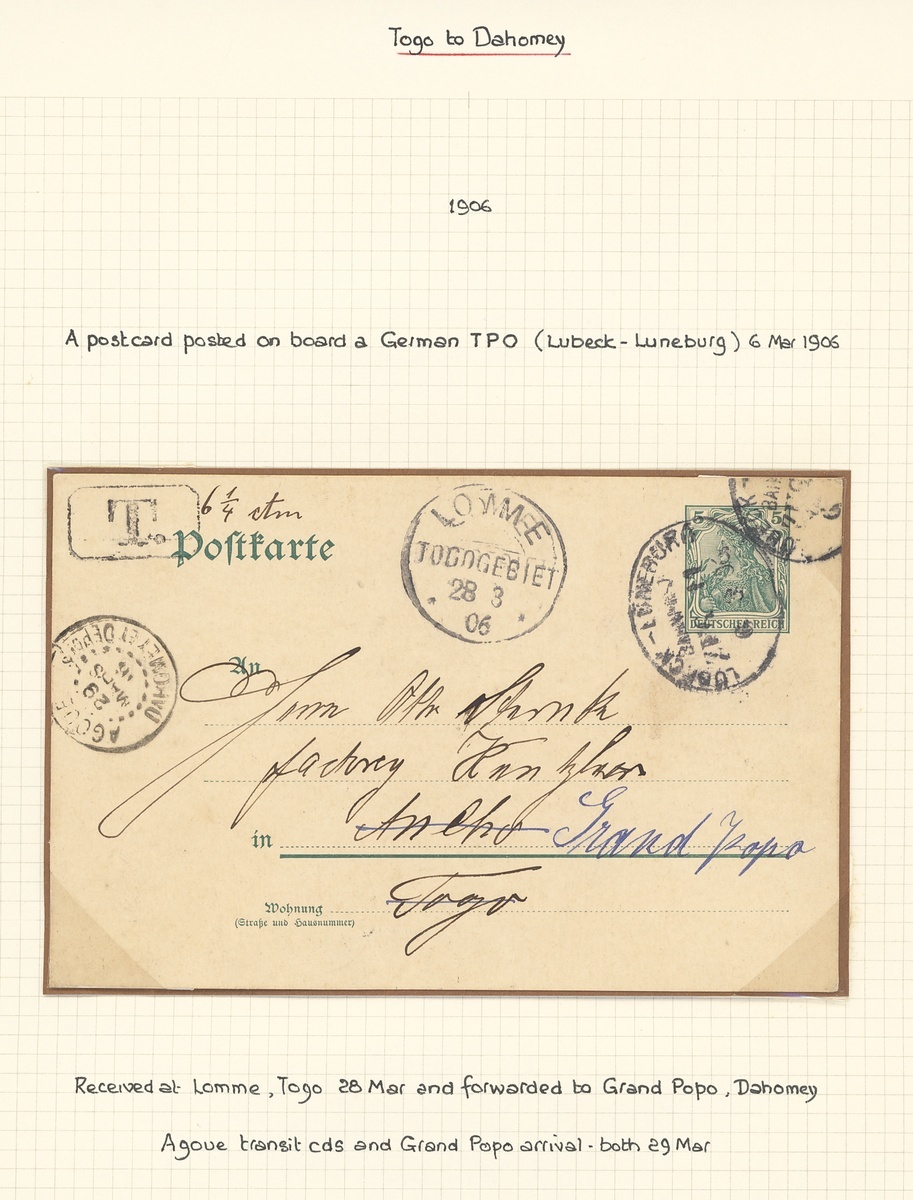 Togo to Dahomey
1906
A postcard posted on board a German TPO (Lubeck - Luneburg) 6 Mar 1906
T.
6 1/4 ctm
Postkarte
LOMME
TOGOGEBIET
28 3
06
LÜBECK - LÜNEBURG
BAHNPOST
5 5
DEUTSCHES REICH
AGOUE
29
MARS
06
DAHOMEY ET DEPCES
An
Herrn Otto
factorey
in Anecho Grand Popo
Wohnung Togo
(Straße und Hausnummer)
Received at Lomme, Togo 28 Mar and forwarded to Grand Popo, Dahomey
Agoue transit cds and Grand Popo arrival - both 29 Mar